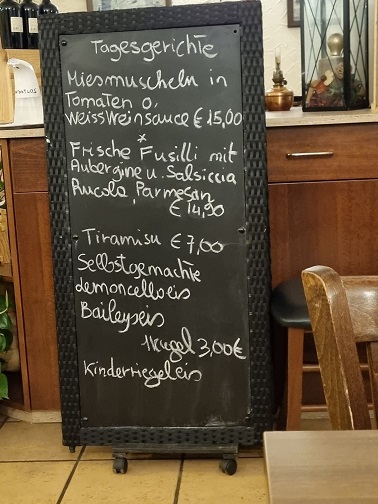 Tagesgerichte
Miesmuscheln in
Tomaten o.
Weissweinsauce € 15,00
*
Frische Fusilli mit
Aubergine u. Salsiccia
Rucola, Parmesan
€ 14,90
Tiramisu € 7,00
Selbstgemachte
Lemoncelloeis
Baileyseis
1 Kugel 3,00€
Kinderriegeleis